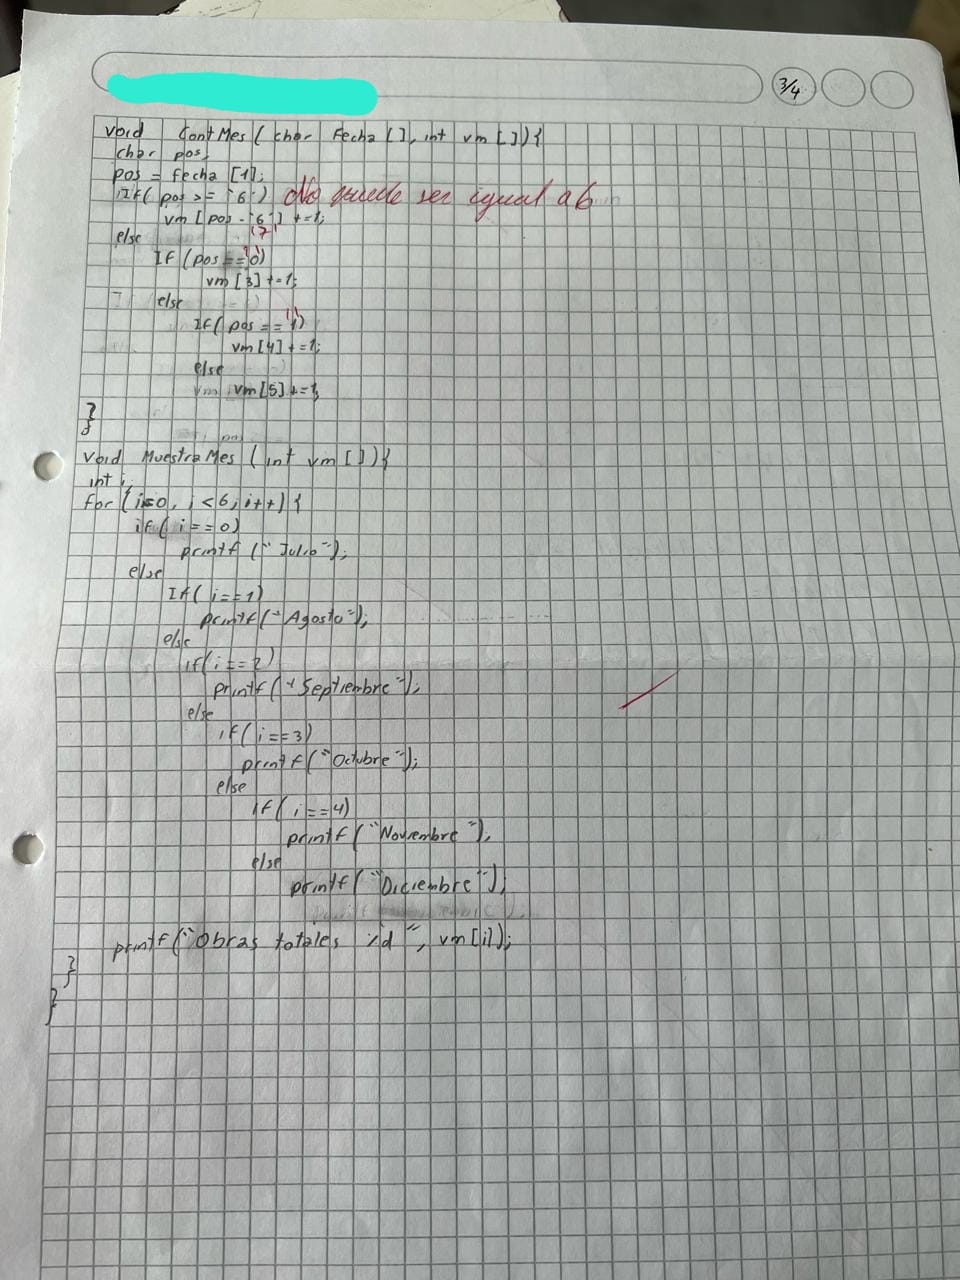 3/4
void ContMes ( char Fecha [ ], int vm [ ]) {
char pos,
pos = fecha [1];
If( pos >= '6') No puede ser igual a 6
vm [ pos - '6'] +=1;
'7'
else
If (pos == '0')
vm [3] +=1;
else
If( pos == '1')
vm[4] +=1;
else
vm[5] +=1;
}
void MuestraMes ( int vm [ ]) {
int i,
for (i=0, i <6, i++) {
if( i ==0)
printf ("Julio");
else
If( i ==1)
printf("Agosto");
else
if(i == 2)
printf("Septiembre");
else
if( i ==3)
printf("Octubre");
else
If( i ==4)
printf("Noviembre"),
else
printf("Diciembre");
printf("Obras totales %d", vm[i]);
}
}